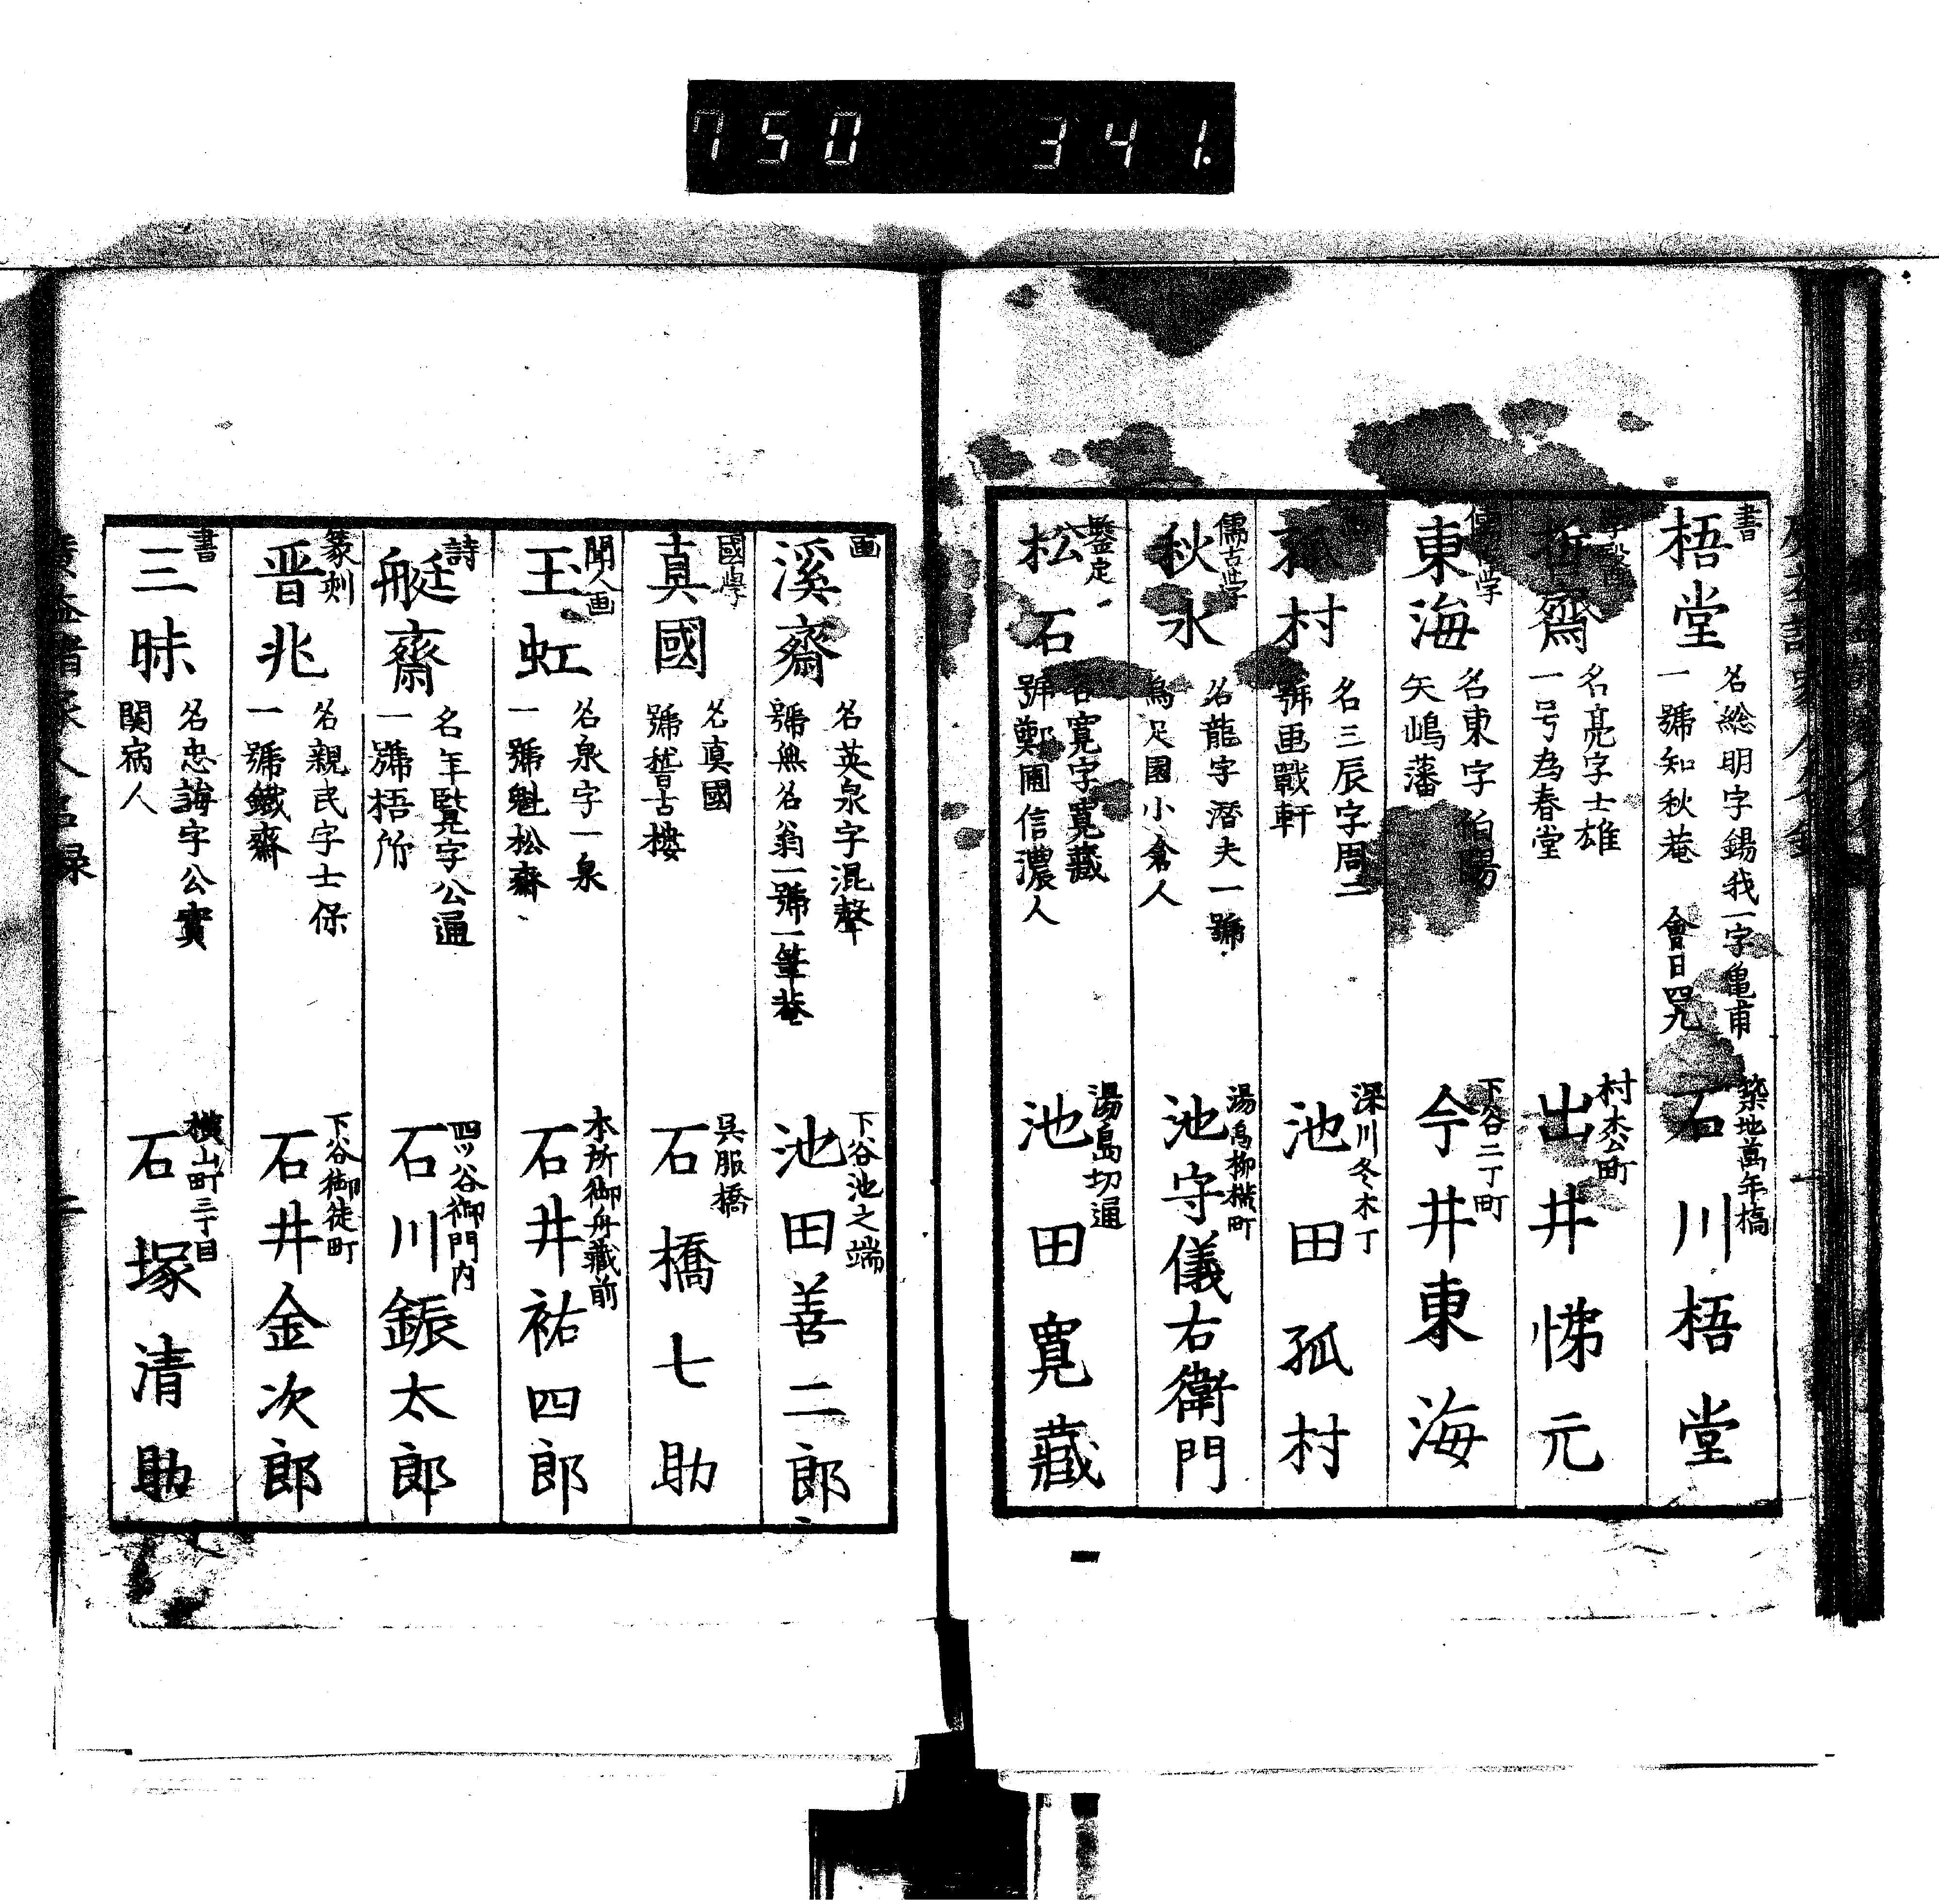 750 341.
書
梧堂
名総明字錫我一字亀甫
一號知秋菴 會日四九
築地萬年橋
石川梧堂
哲齋
名亮字士雄
一号為春堂
村松町
出井悌元
東海
名東字伯陽
矢嶋藩
下谷二丁町
今井東海
孤村
名三辰字周二
號画戰軒
深川冬木丁
池田孤村
儒古学
秋水
名龍字潛夫一號
為足園小倉人
湯島柳横町
池守儀右衛門
鑒定
松石
名寛字寛藏
號鄭圃信濃人
湯島切通
池田寛藏
画
溪齋
名英泉字混聲
號無名翁一號一筆菴
下谷池之端
池田善二郎
國學
真國
名真國
號稽古樓
呉服橋
石橋七助
聞人画
玉虹
名泉字一泉
一號魁松齋
本所御舟藏前
石井祐四郎
詩
艇齋
名年豎字公通
一號梧所
四ツ谷御門内
石川鋠太郎
篆刻
晋兆
名親民字士保
一號鐵齋
下谷御徒町
石井金次郎
書
三昧
名忠誨字公實
関宿人
横山町三丁目
石塚清助
廣益諸家人名録
二